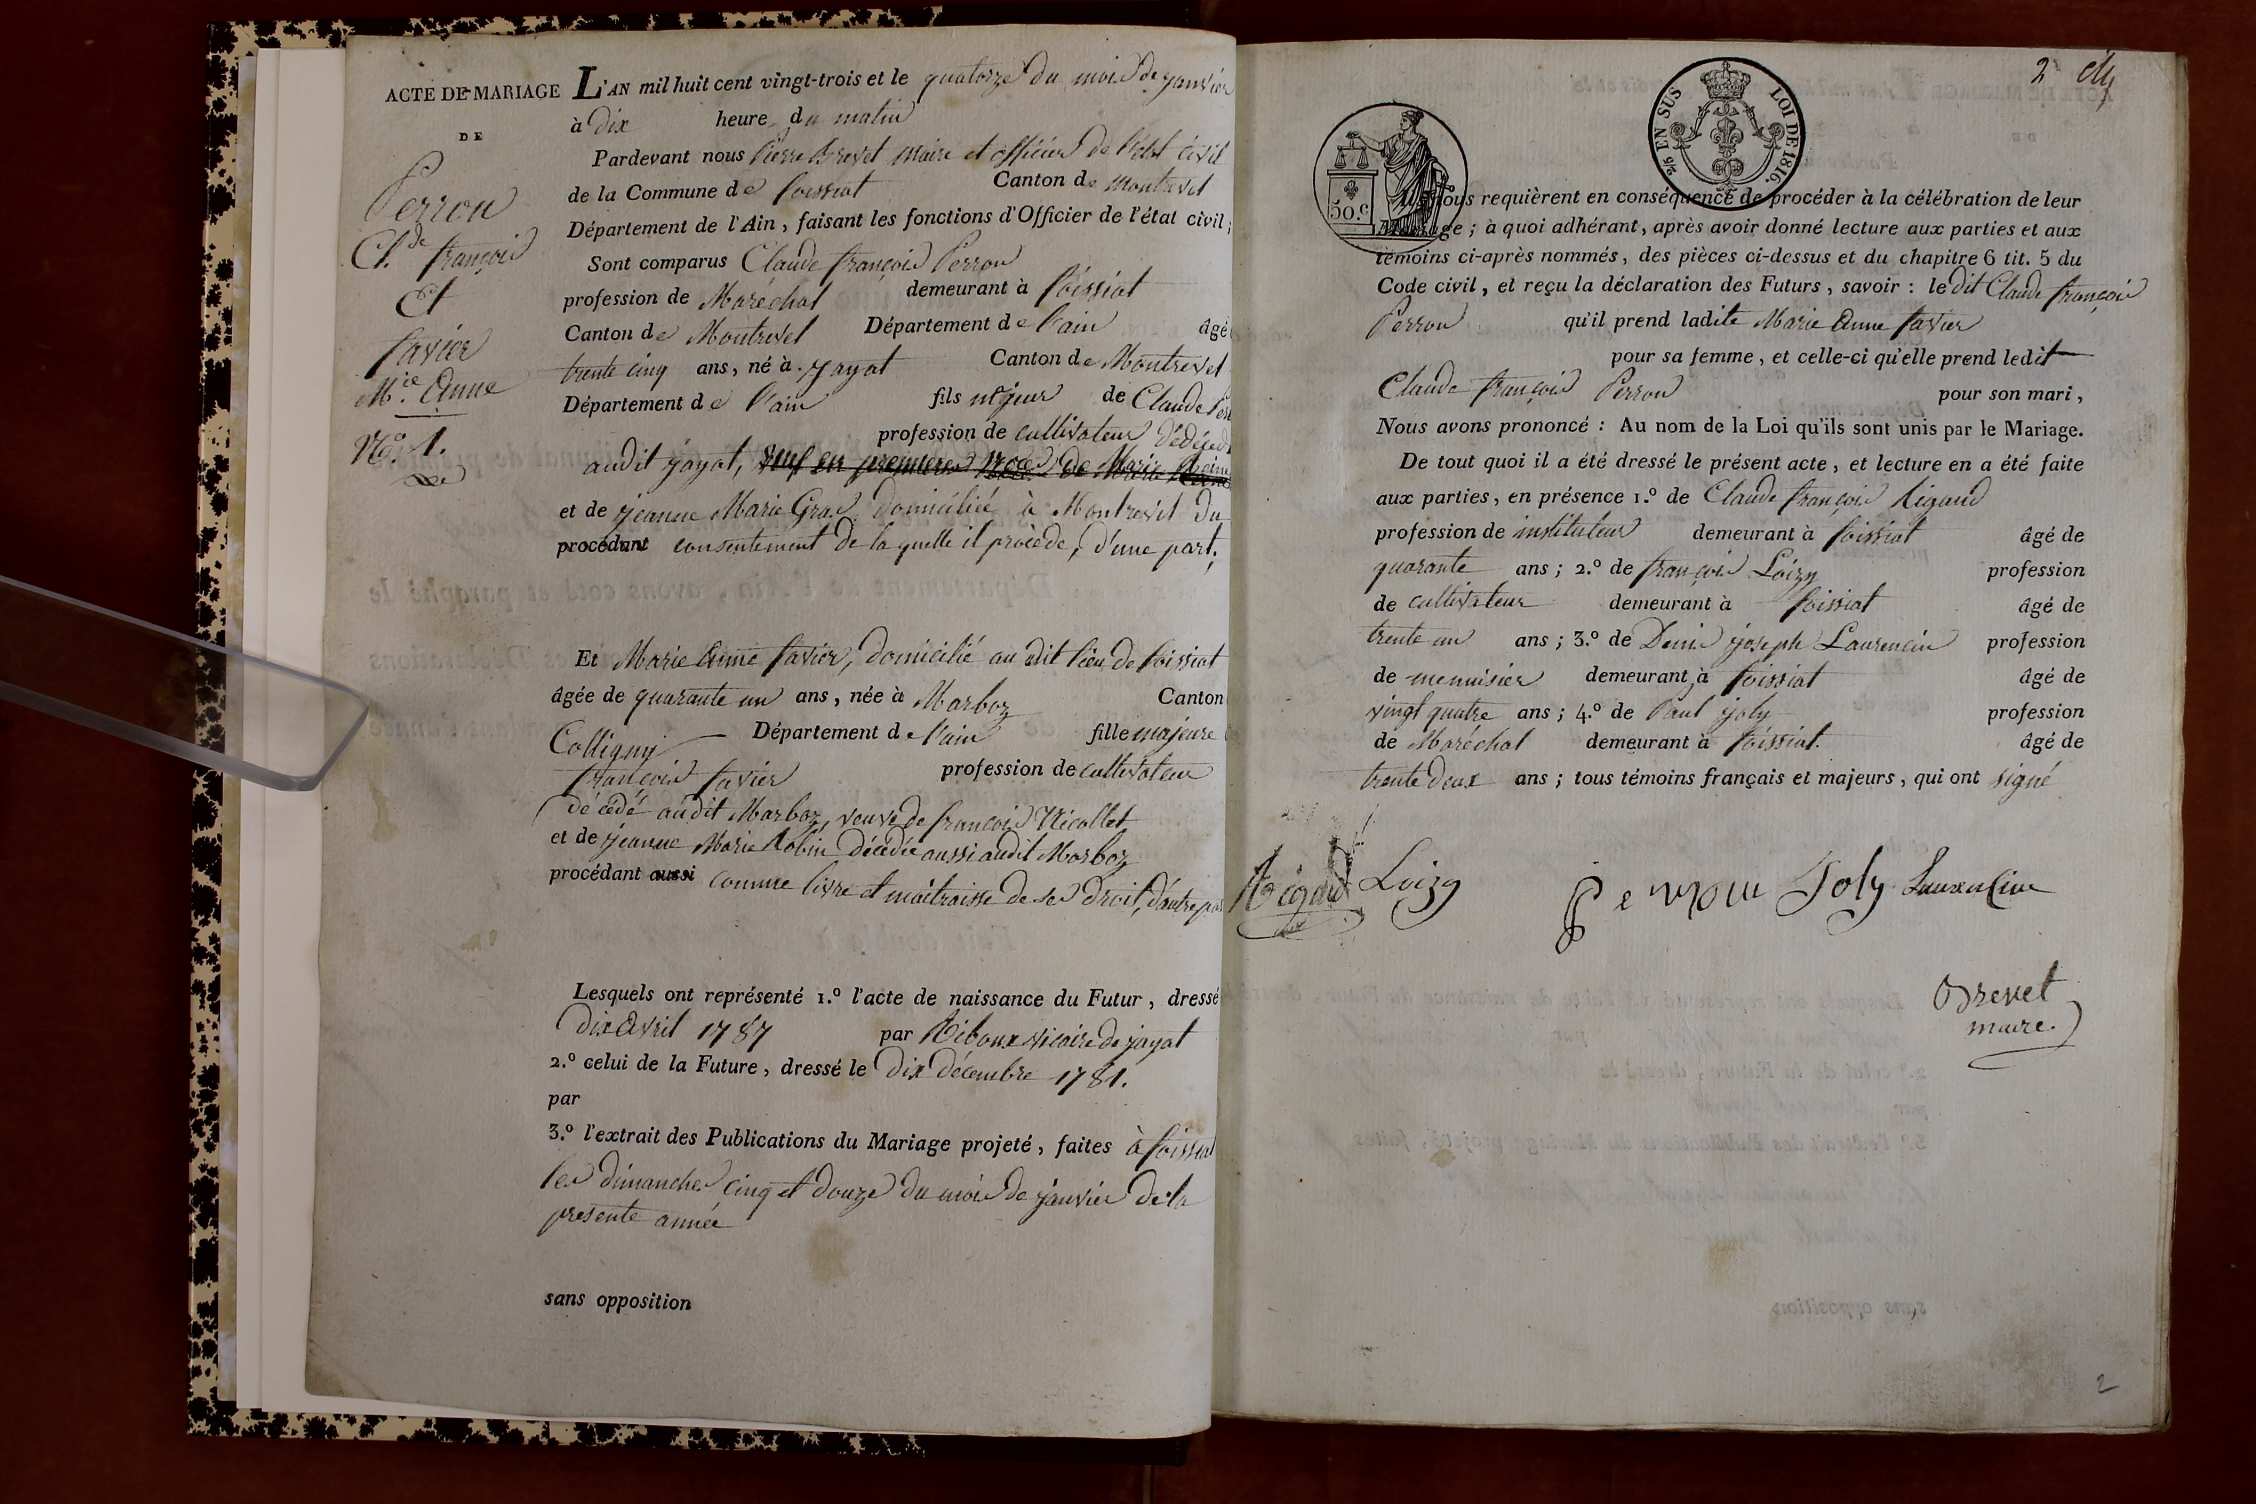 ACTE DE MARIAGE
DE
Perron
Cl.de françois
Et
favier
M.ie Anne
N.o 1.
L'AN mil huit cent vingt-trois et le quatorze du mois de janvier
à dix heure du matin
Pardevant nous Pierre Brevet Maire et officier de l'état civil
de la Commune de foissiat Canton de Montrevel
Département de l'Ain, faisant les fonctions d'Officier de l'état civil;
Sont comparus Claude françois Perron
profession de Maréchal demeurant à foissiat
Canton de Montrevel Département de l'ain âgé
trente cinq ans, né à jayat Canton de Montrevel
Département de l'ain fils majeur de Claude
profession de cultivateur
audit jayat, veuf en premieres noces de Marie
et de jeanne Marie Gras domiciliée à Montrevel du
procédant consentement de laquelle il procède, d'une part,
Et Marie Anne favier, domicilié au dit lieu de foissiat
âgée de quarante un ans, née à Marboz Canton
Colligny Département de l'ain fille majeure
françois favier profession de cultivateur
décédé audit Marboz, veuve de françois Nicollet
et de jeanne Marie Robin décédée aussi audit Marboz
procédant aussi comme livre et maitraisse de ses droit, d'autre par
Lesquels ont représenté 1.o l'acte de naissance du Futur, dressé
dix Avril 1787 par Riboux vicaire de jayat
2.o celui de la Future, dressé le dix décembre 1781.
par
3.o l'extrait des Publications du Mariage projeté, faites à foissiat
les dimanches cinq et douze du mois de janvier de la
presente année
sans opposition
2
EN SUS LOI DE 1816.
50.c
nous requièrent en conséquence de procéder à la célébration de leur
Mariage; à quoi adhérant, après avoir donné lecture aux parties et aux
témoins ci-après nommés, des pièces ci-dessus et du chapitre 6 tit. 5 du
Code civil, et reçu la déclaration des Futurs, savoir: le dit Claude françois
Perron qu'il prend ladite Marie Anne favier
pour sa femme, et celle-ci qu'elle prend ledit
Claude françois Perron pour son mari,
Nous avons prononcé: Au nom de la Loi qu'ils sont unis par le Mariage.
De tout quoi il a été dressé le présent acte, et lecture en a été faite
aux parties, en présence 1.o de Claude françois Rigaud
profession de instituteur demeurant à foissiat âgé de
quarante ans; 2.o de françois Loizy profession
de cultivateur demeurant à foissiat âgé de
trente un ans; 3.o de Denis joseph Laurencin profession
de menuisier demeurant à foissiat âgé de
vingt quatre ans; 4.o de Paul joly profession
de Maréchal demeurant à foissiat. âgé de
trente deux ans; tous témoins français et majeurs, qui ont signé
Rigaud Loizy Perron Joly Laurencin
Brevet
maire.
2